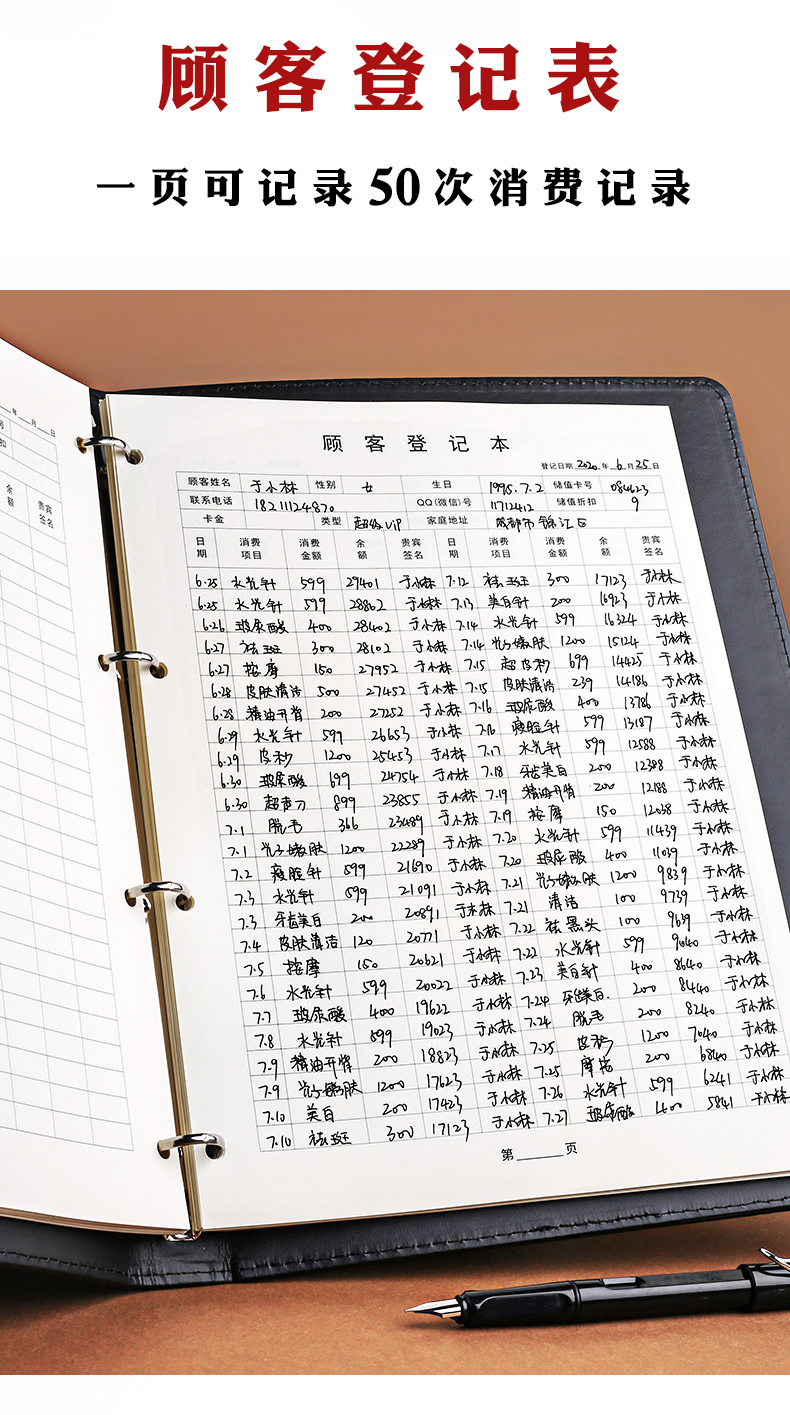 顾客登记表
一页可记录50次消费记录
年 月 日
号
扣
余额 贵宾签名
顾客登记本
登记日期 2020 年 6 月 25 日
顾客姓名 于小林 性别 女 生日 1995.7.2 储值卡号 084623
联系电话 18211124870 QQ(微信)号 11712412 储值折扣 9
卡金 类型 超级VIP 家庭地址 成都市锦江区
日期 消费项目 消费金额 余额 贵宾签名 日期 消费项目 消费金额 余额 贵宾签名
6.25 水光针 599 29401 于小林 7.12 祛斑 300 17123 于小林
6.25 水光针 599 28802 于小林 7.13 美白针 200 16923 于小林
6.26 玻尿酸 400 28402 于小林 7.14 水光针 599 16324 于小林
6.27 祛斑 300 28102 于小林 7.14 光子嫩肤 1200 15124 于小林
6.27 按摩 150 27952 于小林 7.15 超皮秒 699 14425 于小林
6.28 皮肤清洁 500 27452 于小林 7.15 皮肤清洁 239 14186 于小林
6.28 精油开背 200 27252 于小林 7.16 玻尿酸 400 13786 于小林
6.29 水光针 599 26653 于小林 7.16 瘦脸针 599 13187 于小林
6.29 皮秒 1200 25453 于小林 7.17 水光针 599 12588 于小林
6.30 玻尿酸 699 24754 于小林 7.18 牙齿美白 200 12388 于小林
6.30 超声刀 899 23855 于小林 7.19 精油开背 200 12188 于小林
7.1 脱毛 366 23489 于小林 7.19 按摩 150 12038 于小林
7.1 光子嫩肤 1200 22289 于小林 7.20 水光针 599 11439 于小林
7.2 瘦脸针 599 21690 于小林 7.20 玻尿酸 400 11039 于小林
7.3 水光针 599 21091 于小林 7.21 光子嫩肤 1200 9839 于小林
7.3 牙齿美白 200 20891 于小林 7.21 清洁 100 9739 于小林
7.4 皮肤清洁 120 20771 于小林 7.22 祛黑头 100 9639 于小林
7.5 按摩 150 20621 于小林 7.22 水光针 599 9040 于小林
7.6 水光针 599 20022 于小林 7.23 美白针 400 8640 于小林
7.7 玻尿酸 400 19622 于小林 7.24 牙齿美白 200 8440 于小林
7.8 水光针 599 19023 于小林 7.24 脱毛 200 8240 于小林
7.9 精油开背 200 18823 于小林 7.25 皮秒 1200 7040 于小林
7.9 光子嫩肤 1200 17623 于小林 7.25 200 6840 于小林
7.10 美白 200 17423 于小林 7.26 水光针 599 6241 于小林
7.10 祛斑 300 17123 于小林 7.27 玻尿酸 400 5841 于小林
第 页